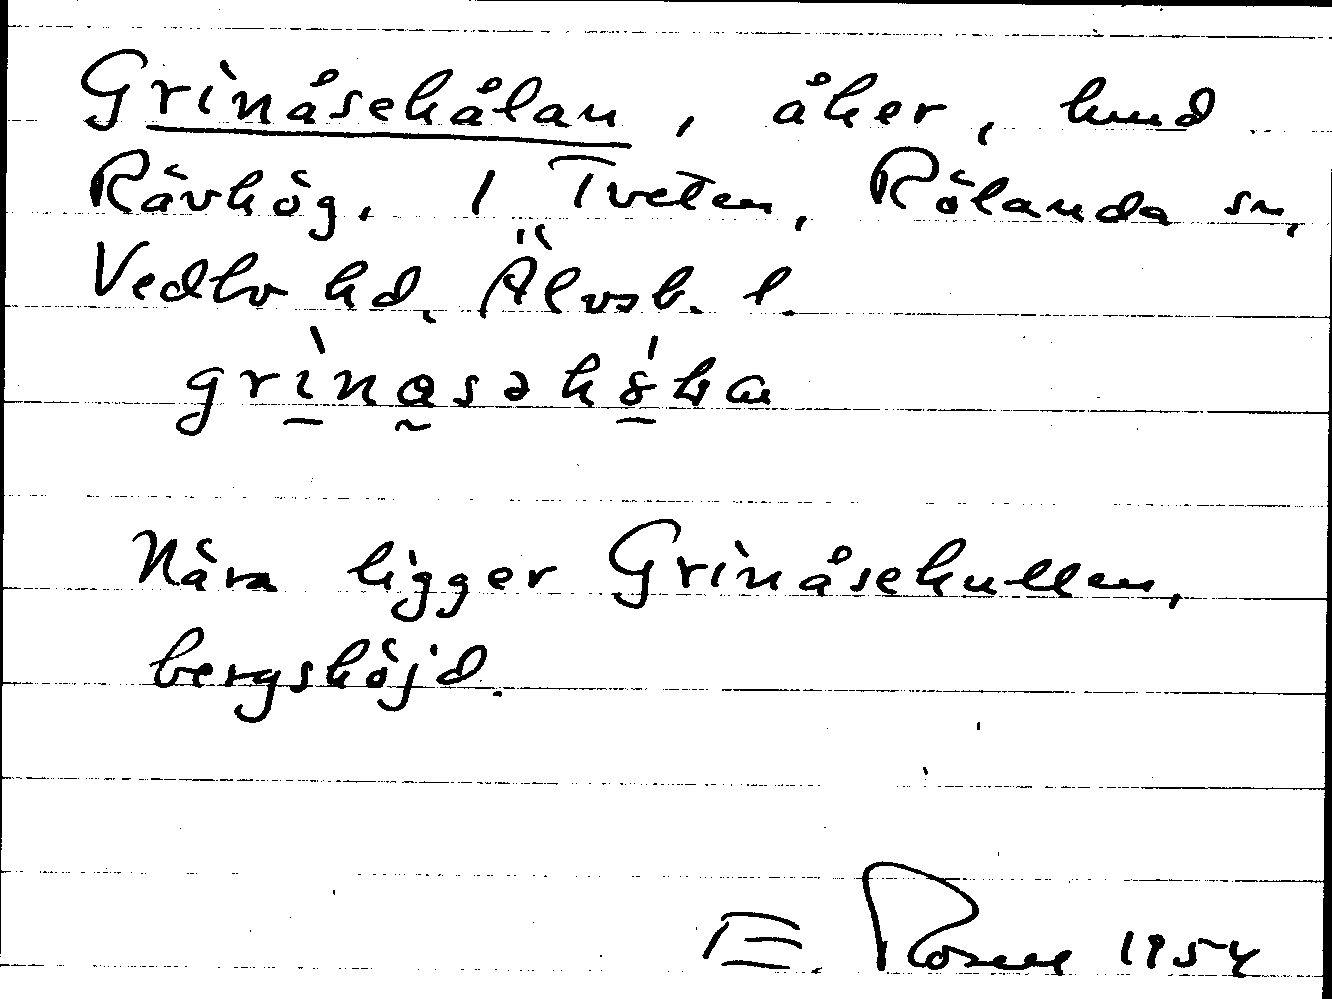 Grinåsehålan, åker, hmd
Rävhög. 1 Tveten, Rölanda sn,
Vedbo hd, Älvsb. l.
Nära ligger Grinåsekullen,
bergshöjd.
E. Rosell 1954